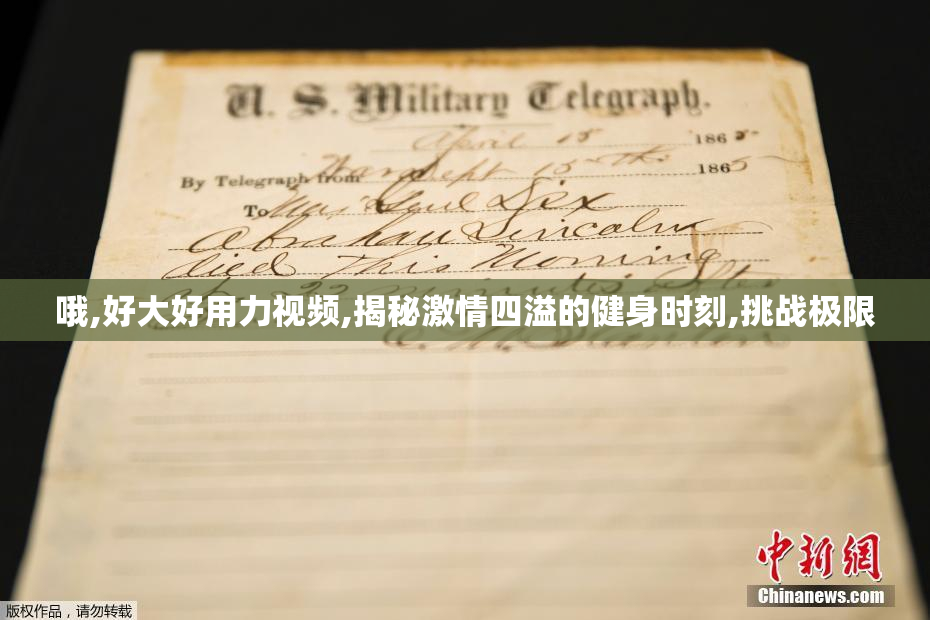 U. S. Military Telegraph.
April 15 1865
By Telegraph from War Dept 15th 1865
To Maj Genl Dix
Abraham Lincoln
died This Morning
22 minutes after
哦,好大好用力视频,揭秘激情四溢的健身时刻,挑战极限
E. M. Stanton
中新网
Chinanews.com
版权作品，请勿转载